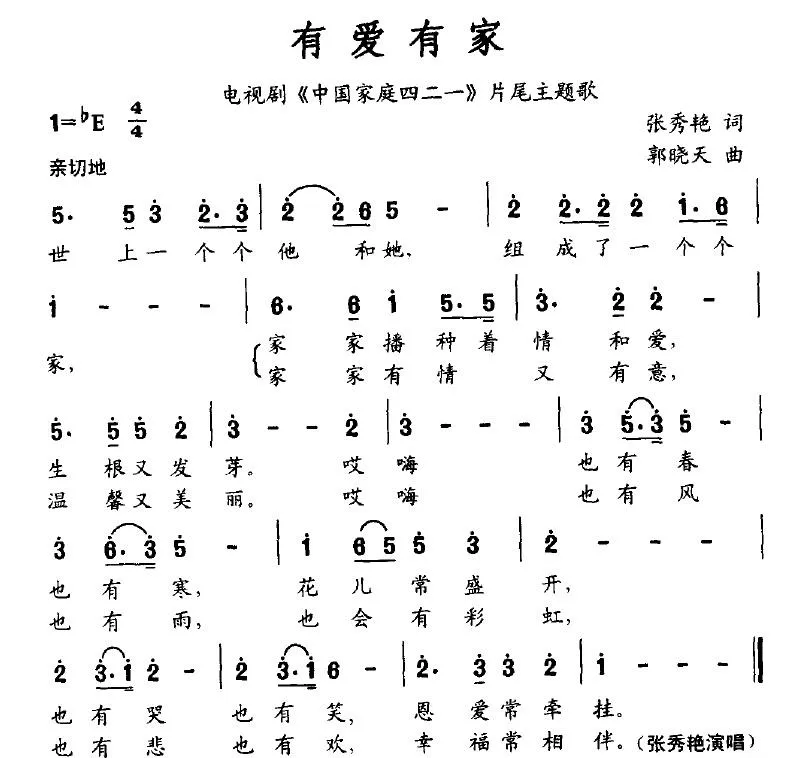 有爱有家
电视剧《中国家庭四二一》片尾主题歌
1=♭E 4/4
张秀艳 词
郭晓天 曲
亲切地
5· 5 3 2·3 | 2 2 6 5 - | 2 2·2 2 1·6 |
世 上一 个个 他 和她, 组 成了一 个个
1 - - - | 6· 6 1 5·5 | 3· 2 2 - |
家, 家 家播 种着 情 和爱,
家 家有 情 又 有意,
5· 5 5 2 | 3 - - 2 | 3 - - - | 3 5·3 5 - |
生 根又发 芽。 哎 嗨 也 有 春
温 馨又美 丽。 哎 嗨 也 有 风
3 6·3 5 - | 1 6 5 5 3 | 2 - - - |
也 有 寒, 花 儿 常 盛 开,
也 有 雨, 也 会 有 彩 虹,
2 3·1 2 - | 2 3·1 6 - | 2· 3 3 2 | 1 - - - ‖
也 有 哭 也 有 笑, 恩 爱常 牵 挂。
也 有 悲 也 有 欢, 幸 福常 相 伴。(张秀艳演唱)